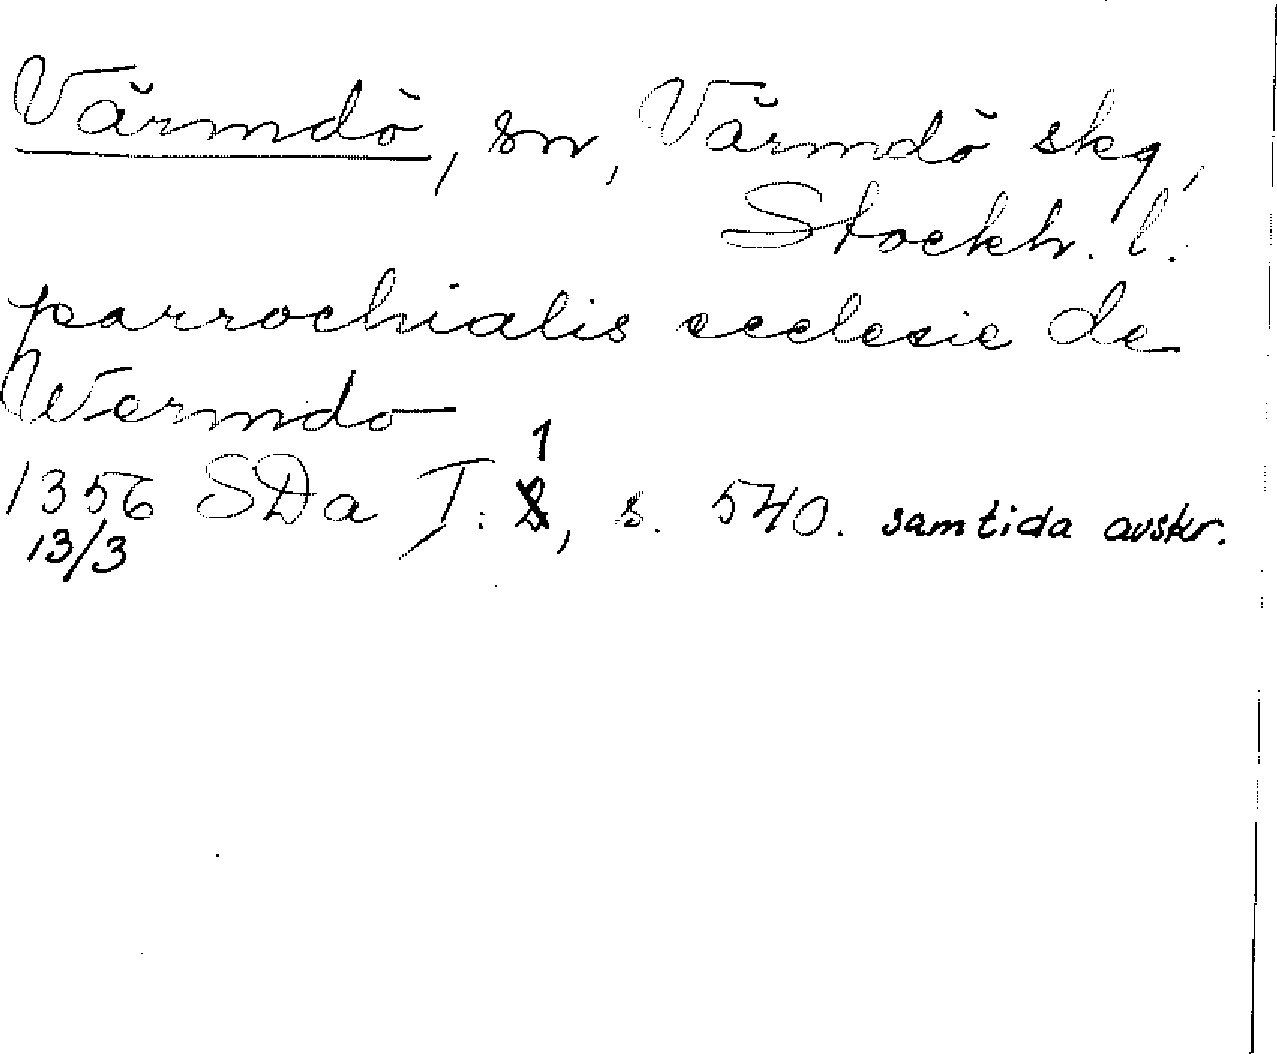 Värmdö, sn, Värmdö skg,
Stockh. l.
parrochialis ecclesie de
Wermdo
1
1356 SDa I: , s. 540. samtida avskr.
13/3